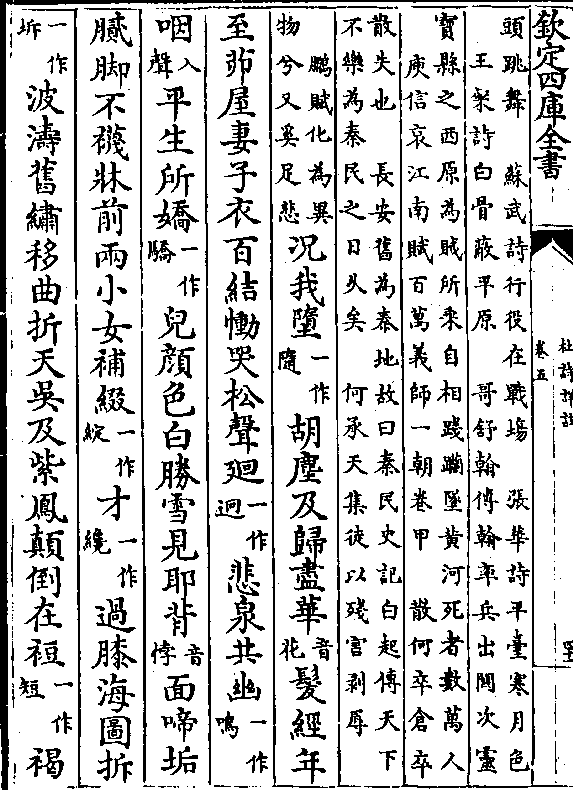 欽定四庫全書
杜詩詳註
卷五
頭跳舞　蘇武詩行役在戰塲　張華詩平臺寒月色
王粲詩白骨蔽平原　哥舒翰傳翰率兵出關次靈
寳縣之西原為賊所乗自相踐蹦墜黄河死者數萬人
庾信哀江南賦百萬義師一朝卷甲　散何卒倉卒
散失也　長安舊為秦地故曰秦民史記白起傳天下
不樂為秦民之日乆矣　何承天集徒以殘害剥辱
鵬賦化為異物兮又奚足悲況我墮一作隨胡塵及歸盡華音花髮經年
至茆屋妻子衣百結慟哭松聲廻一作迥悲泉共幽一作鳴
咽入聲平生所嬌一作驕兒顔色白勝雪見耶背音悖面啼垢
膩脚不襪牀前兩小女補綴一作綻才一作纔過膝海圖折
一作坼波濤舊繡移曲折天吳及紫鳳顛倒在裋一作短褐